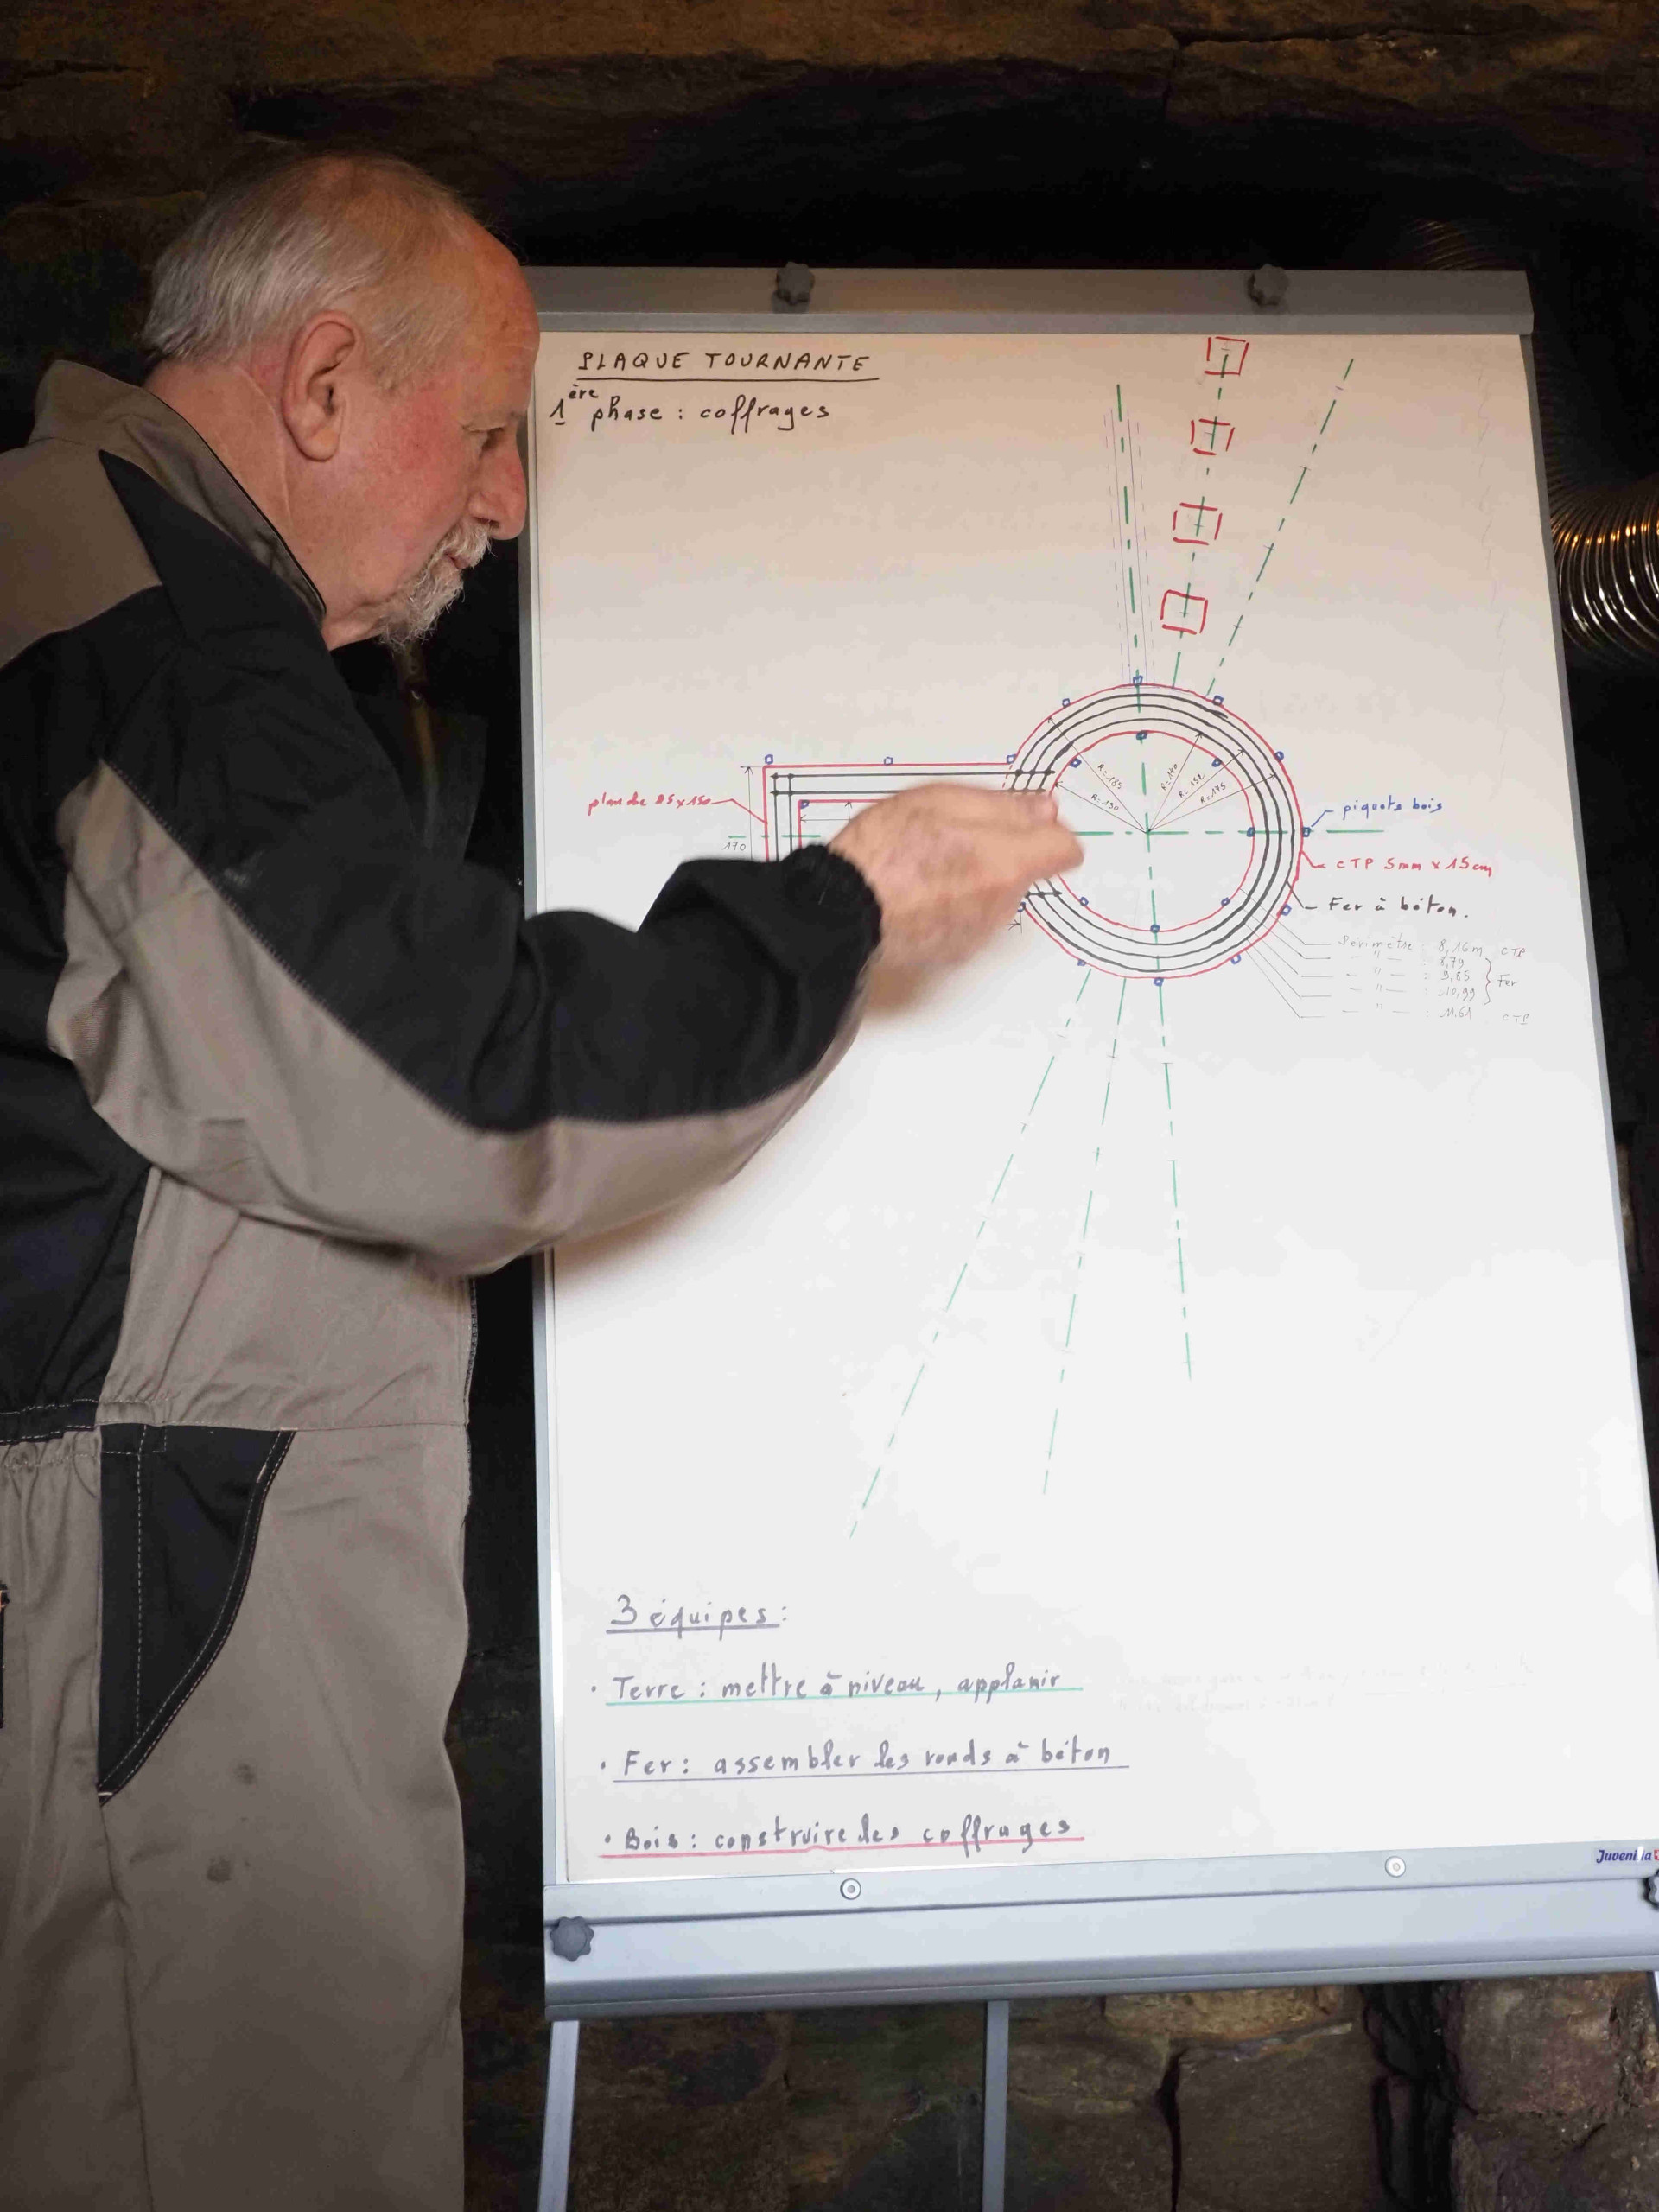 PLAQUE TOURNANTE
1ère phase : coffrages
planche 25x150
170
R=185
R=130
R=140
R=152
R=175
piquets bois
CTP 5mm x 15cm
Fer à béton.
Périmètre : 8,16m CTP
— " — : 8,79
— " — : 9,55 } Fer
— " — : 10,99
— " — : 11,61 CTP
3 équipes :
· Terre : mettre à niveau, applanir
· Fer : assembler les ronds à béton
· Bois : construire les coffrages
Juvenilia